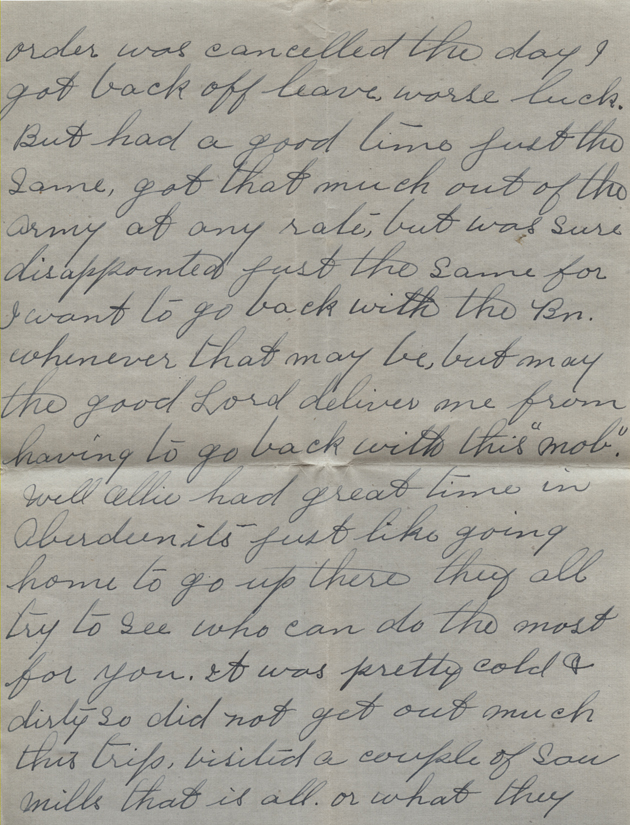 order was cancelled the day I
got back off leave, worse luck.
But had a good time just the
same, got that much out of the
army at any rate, but was sure
disappointed just the same for
I want to go back with the Bn.
whenever that may be, but may
the good Lord deliver me from
having to go back with this "mob".
Well Ellie had great time in
Aberdeen its just like going
home to go up there they all
try to see who can do the most
for you. It was pretty cold &
dirty so did not get out much
this trip, visited a couple of saw
mills that is all. or what they